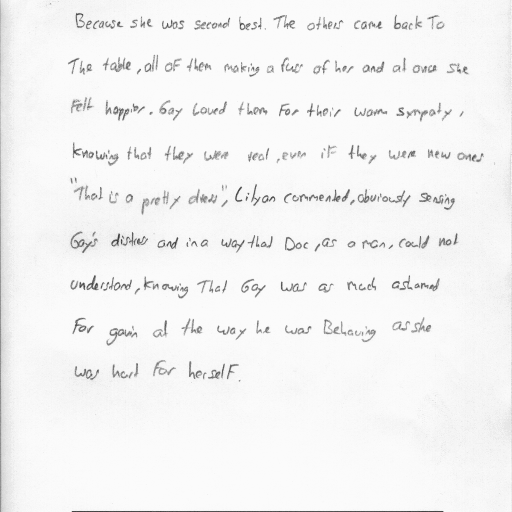 Because she was second best. The others came back To
The table, all of them making a fuss of her and at once she
Felt happier. Gay Loved them For their warm sympaty,
knowing that they were real, even if they were new ones
"That is a pretty dress", Lilyan commented, obviously sensing
Gay's distress and in a way that Doc, as a man, could not
understand, knowing That Gay was as much ashamed
For gavin at the way he was Behaving as she
was hurt For herself.